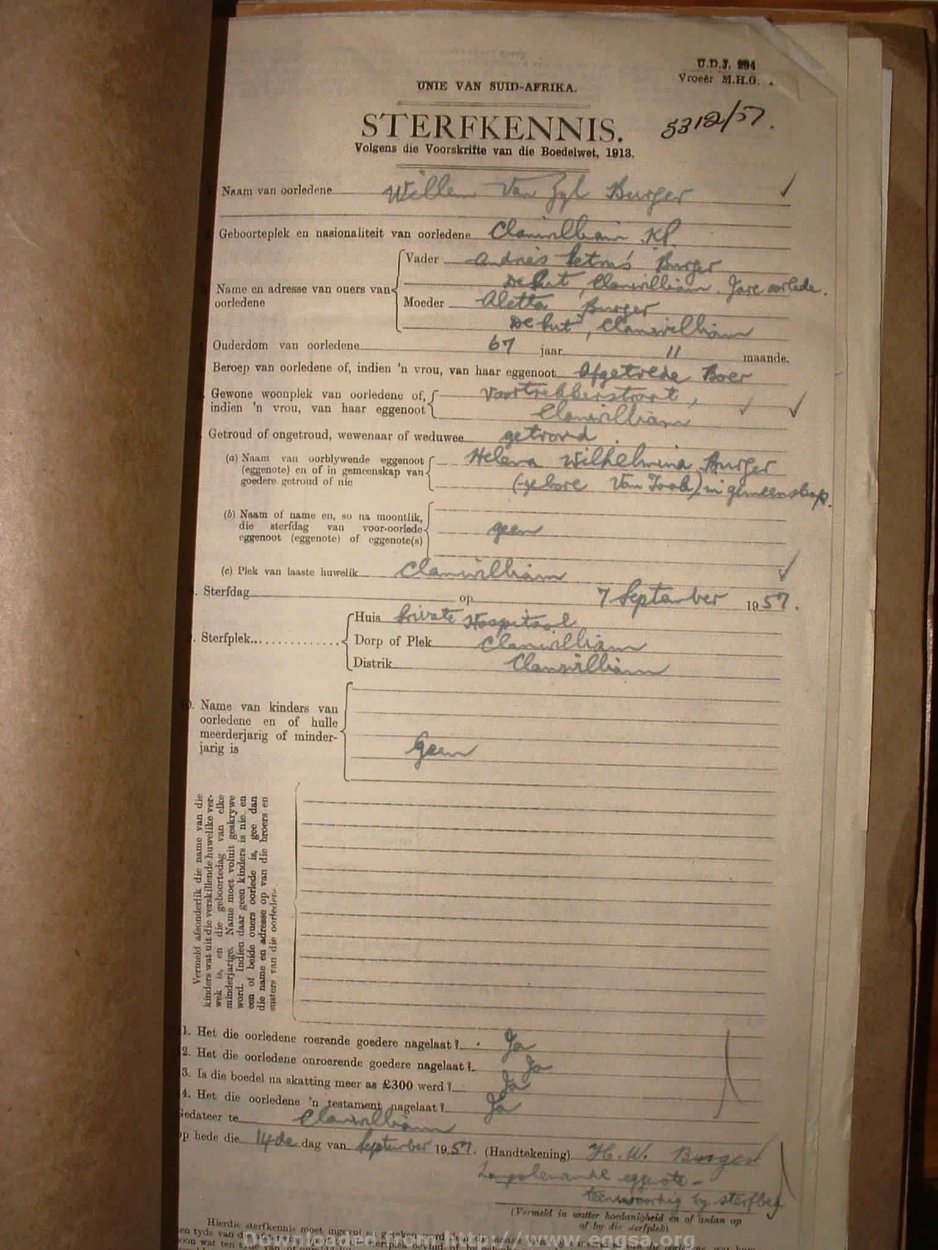 U.D.J. 294
Vroeër M.H.G.
UNIE VAN SUID-AFRIKA.
STERFKENNIS.
5312/57.
Volgens die Voorskrifte van die Boedelwet, 1913.
Naam van oorledene Willem Van Zyl Burger
Geboorteplek en nasionaliteit van oorledene Clanwilliam KP.
Name en adresse van ouers van oorledene
Vader Andries Petrus Burger
De Hut, Clanwilliam. Jare oorlede.
Moeder Aletta Burger
De Hut, Clanwilliam
Ouderdom van oorledene 67 jaar 11 maande.
Beroep van oorledene of, indien 'n vrou, van haar eggenoot Afgetrede Boer
Gewone woonplek van oorledene of, Voortrekkerstraat,
indien 'n vrou, van haar eggenoot Clanwilliam
Getroud of ongetroud, wewenaar of weduwee getroud.
(a) Naam van oorblywende eggenoot Helena Wilhelmina Burger
(eggenote) en of in gemeenskap van
goedere getroud of nie (gebore Van Zyl) in gemeenskap.
(b) Naam of name en, so na moontlik,
die sterfdag van voor-oorlede geen
eggenoot (eggenote) of eggenote(s)
(c) Plek van laaste huwelik Clanwilliam
Sterfdag op 7 September 1957.
Sterfplek
Huis Private Hospitaal
Dorp of Plek Clanwilliam
Distrik Clanwilliam
Name van kinders van
oorledene en of hulle
meerderjarig of minder-
jarig is Geen
Vermeld afsonderlik die name van die
kinders wat uit die verskillende huwelike ver-
wek is, en die geboortedag van elke
minderjarige. Name moet voluit geskrywe
word. Indien daar geen kinders is nie, en
een of beide ouers oorlede is, gee dan
die name en adresse op van die broers en
susters van die oorledene.
1. Het die oorledene roerende goedere nagelaat? Ja
2. Het die oorledene onroerende goedere nagelaat? Ja
3. Is die boedel na skatting meer as £300 werd? Ja
4. Het die oorledene 'n testament nagelaat? Ja
Gedateer te Clanwilliam
op hede die 14de dag van September 1957. (Handtekening) H. W. Burger
eggenote -
teenwoordig by sterfbed
(Vermeld in watter hoedanigheid en of aldan op
of by die sterfplek)
Hierdie sterfkennis moet ingevul
Downloaded from http://www.eggsa.org